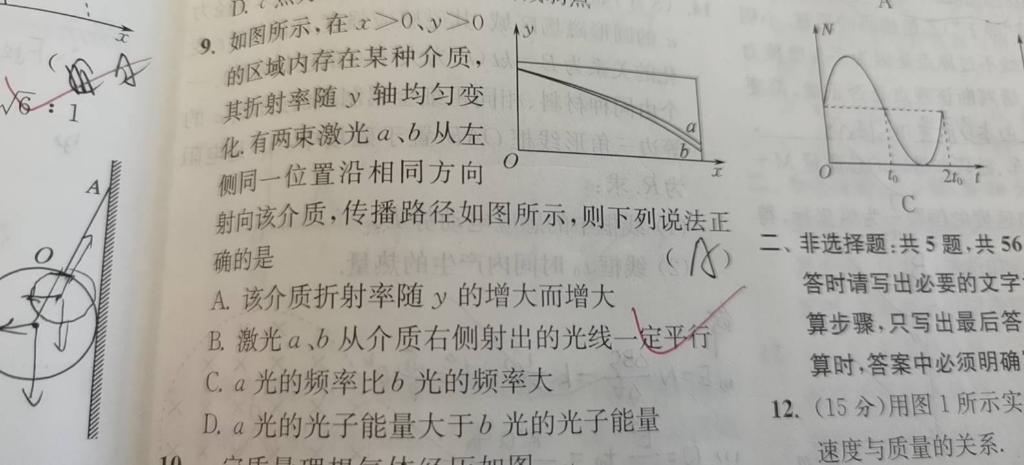 x
√6 : 1
A
O
9. 如图所示,在 x>0,y≤0
的区域内存在某种介质,
其折射率随 y 轴均匀变
化.有两束激光 a、b 从左
侧同一位置沿相同方向
射向该介质,传播路径如图所示,则下列说法正
确的是 (A)
A. 该介质折射率随 y 的增大而增大
B. 激光 a、b 从介质右侧射出的光线一定平行
C. a 光的频率比 b 光的频率大
D. a 光的光子能量大于 b 光的光子能量
y
a
b
O
x
A
N
O
t₀
2t₀
t
C
二、非选择题:共 5 题,共 56
答时请写出必要的文字
算步骤,只写出最后答
算时,答案中必须明确
12. (15 分)用图 1 所示实
速度与质量的关系.